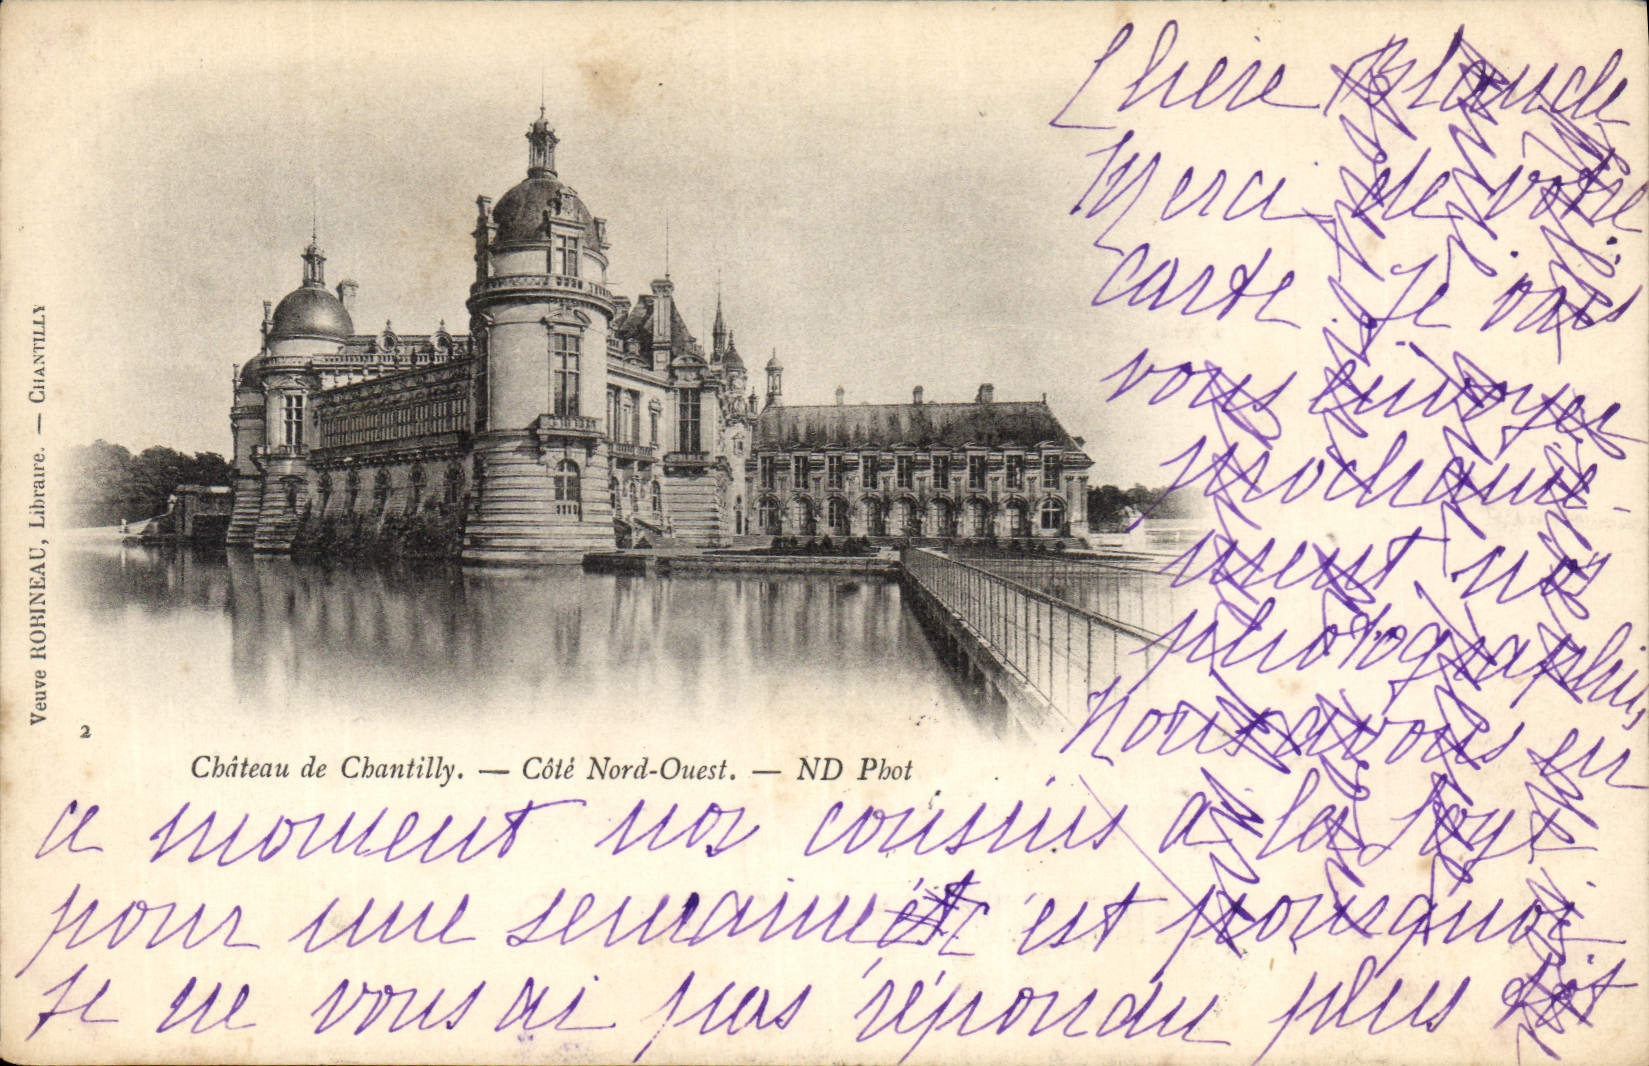 Chère Blanche
Merci de votre
carte Je vais
vous envoyer
prochaine-
ment nos
photographies,
Nous avons en
ce moment nos cousins a la
pour une semaine c'est pourquoi
Je ne vous ai pas répondu plus tôt
Veuve ROBINEAU, Libraire. — CHANTILLY
2
Château de Chantilly. — Côté Nord-Ouest. — ND Phot